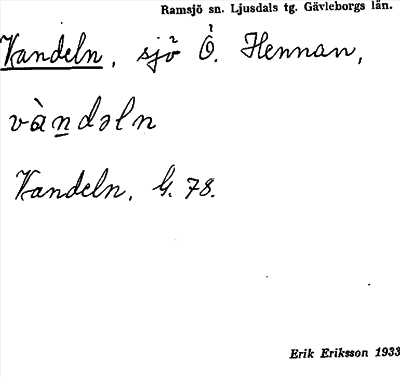 Ramsjö sn. Ljusdals tg. Gävleborgs län.
Vandeln, sjö Ö. Hennan,
vàndəln
Vandeln. G. 78.
Erik Eriksson 1933